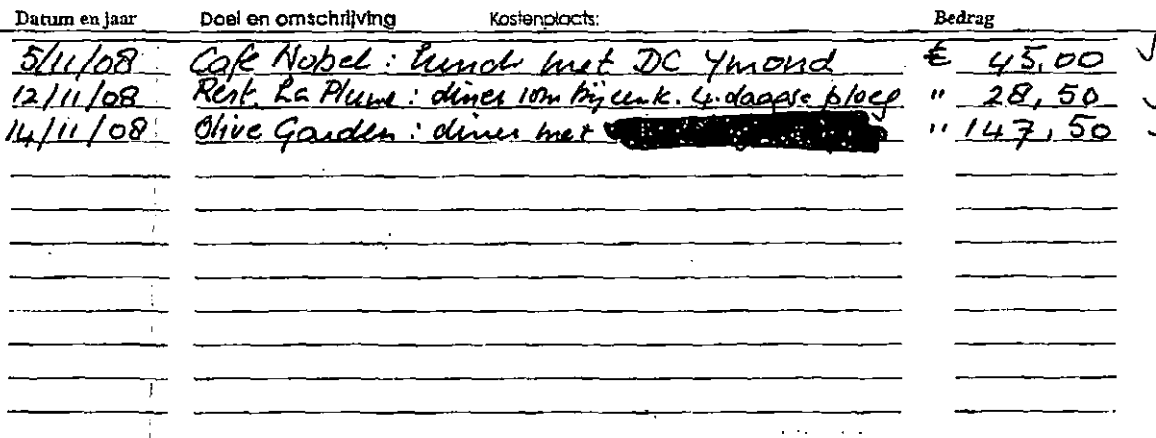 Datum en jaar Doel en omschrijving Kostenplaats: Bedrag
5/11/08 Café Nobel: lunch met DC Ymond € 45,00
12/11/08 Rest. La Plume: diner i.v.m. bijeenk. 4-daagse ploeg " 28,50
14/11/08 Olive Garden: diner met " 147,50